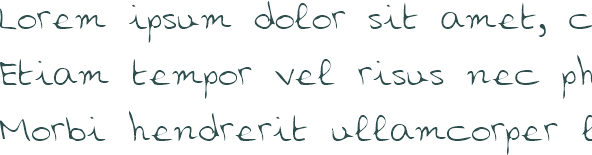 Lorem ipsum dolor sit amet, c
Etiam tempor vel risus nec ph
Morbi hendrerit ullamcorper l